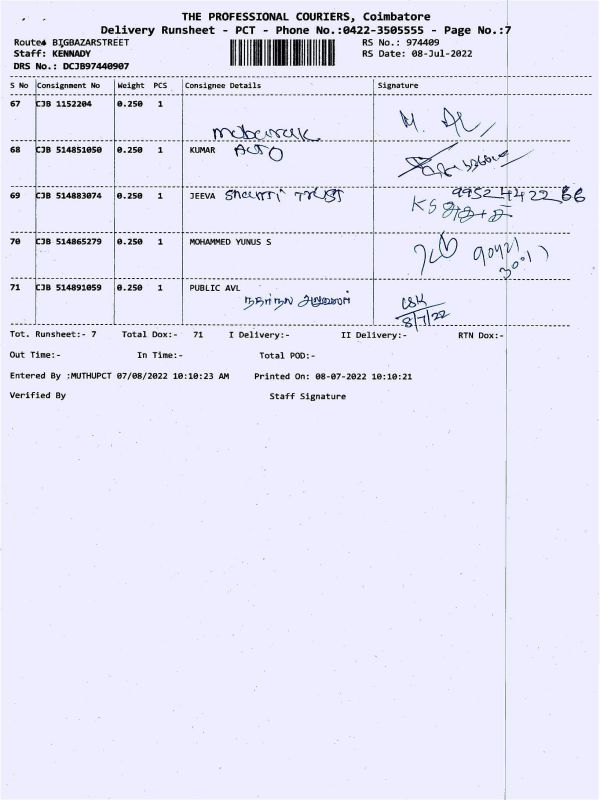 THE PROFESSIONAL COURIERS, Coimbatore
Delivery Runsheet - PCT - Phone No.:0422-3505555 - Page No.:7
Route: BIGBAZARSTREET RS No.: 974409
Staff: KENNADY RS Date: 08-Jul-2022
DRS No.: DCJB97440907
S No Consignment No Weight PCS Consignee Details Signature
67 CJB 1152204 0.250 1
mubarak M.
68 CJB 514851050 0.250 1 KUMAR AUTO
69 CJB 514883074 0.250 1 JEEVA Shanti TRUST 9952 44 22 66
KS
70 CJB 514865279 0.250 1 MOHAMMED YUNUS S
71 CJB 514891059 0.250 1 PUBLIC AVL
8/7/22
Tot. Runsheet:- 7 Total Dox:- 71 I Delivery:- II Delivery:- RTN Dox:-
Out Time:- In Time:- Total POD:-
Entered By :MUTHUPCT 07/08/2022 10:10:23 AM Printed On: 08-07-2022 10:10:21
Verified By Staff Signature